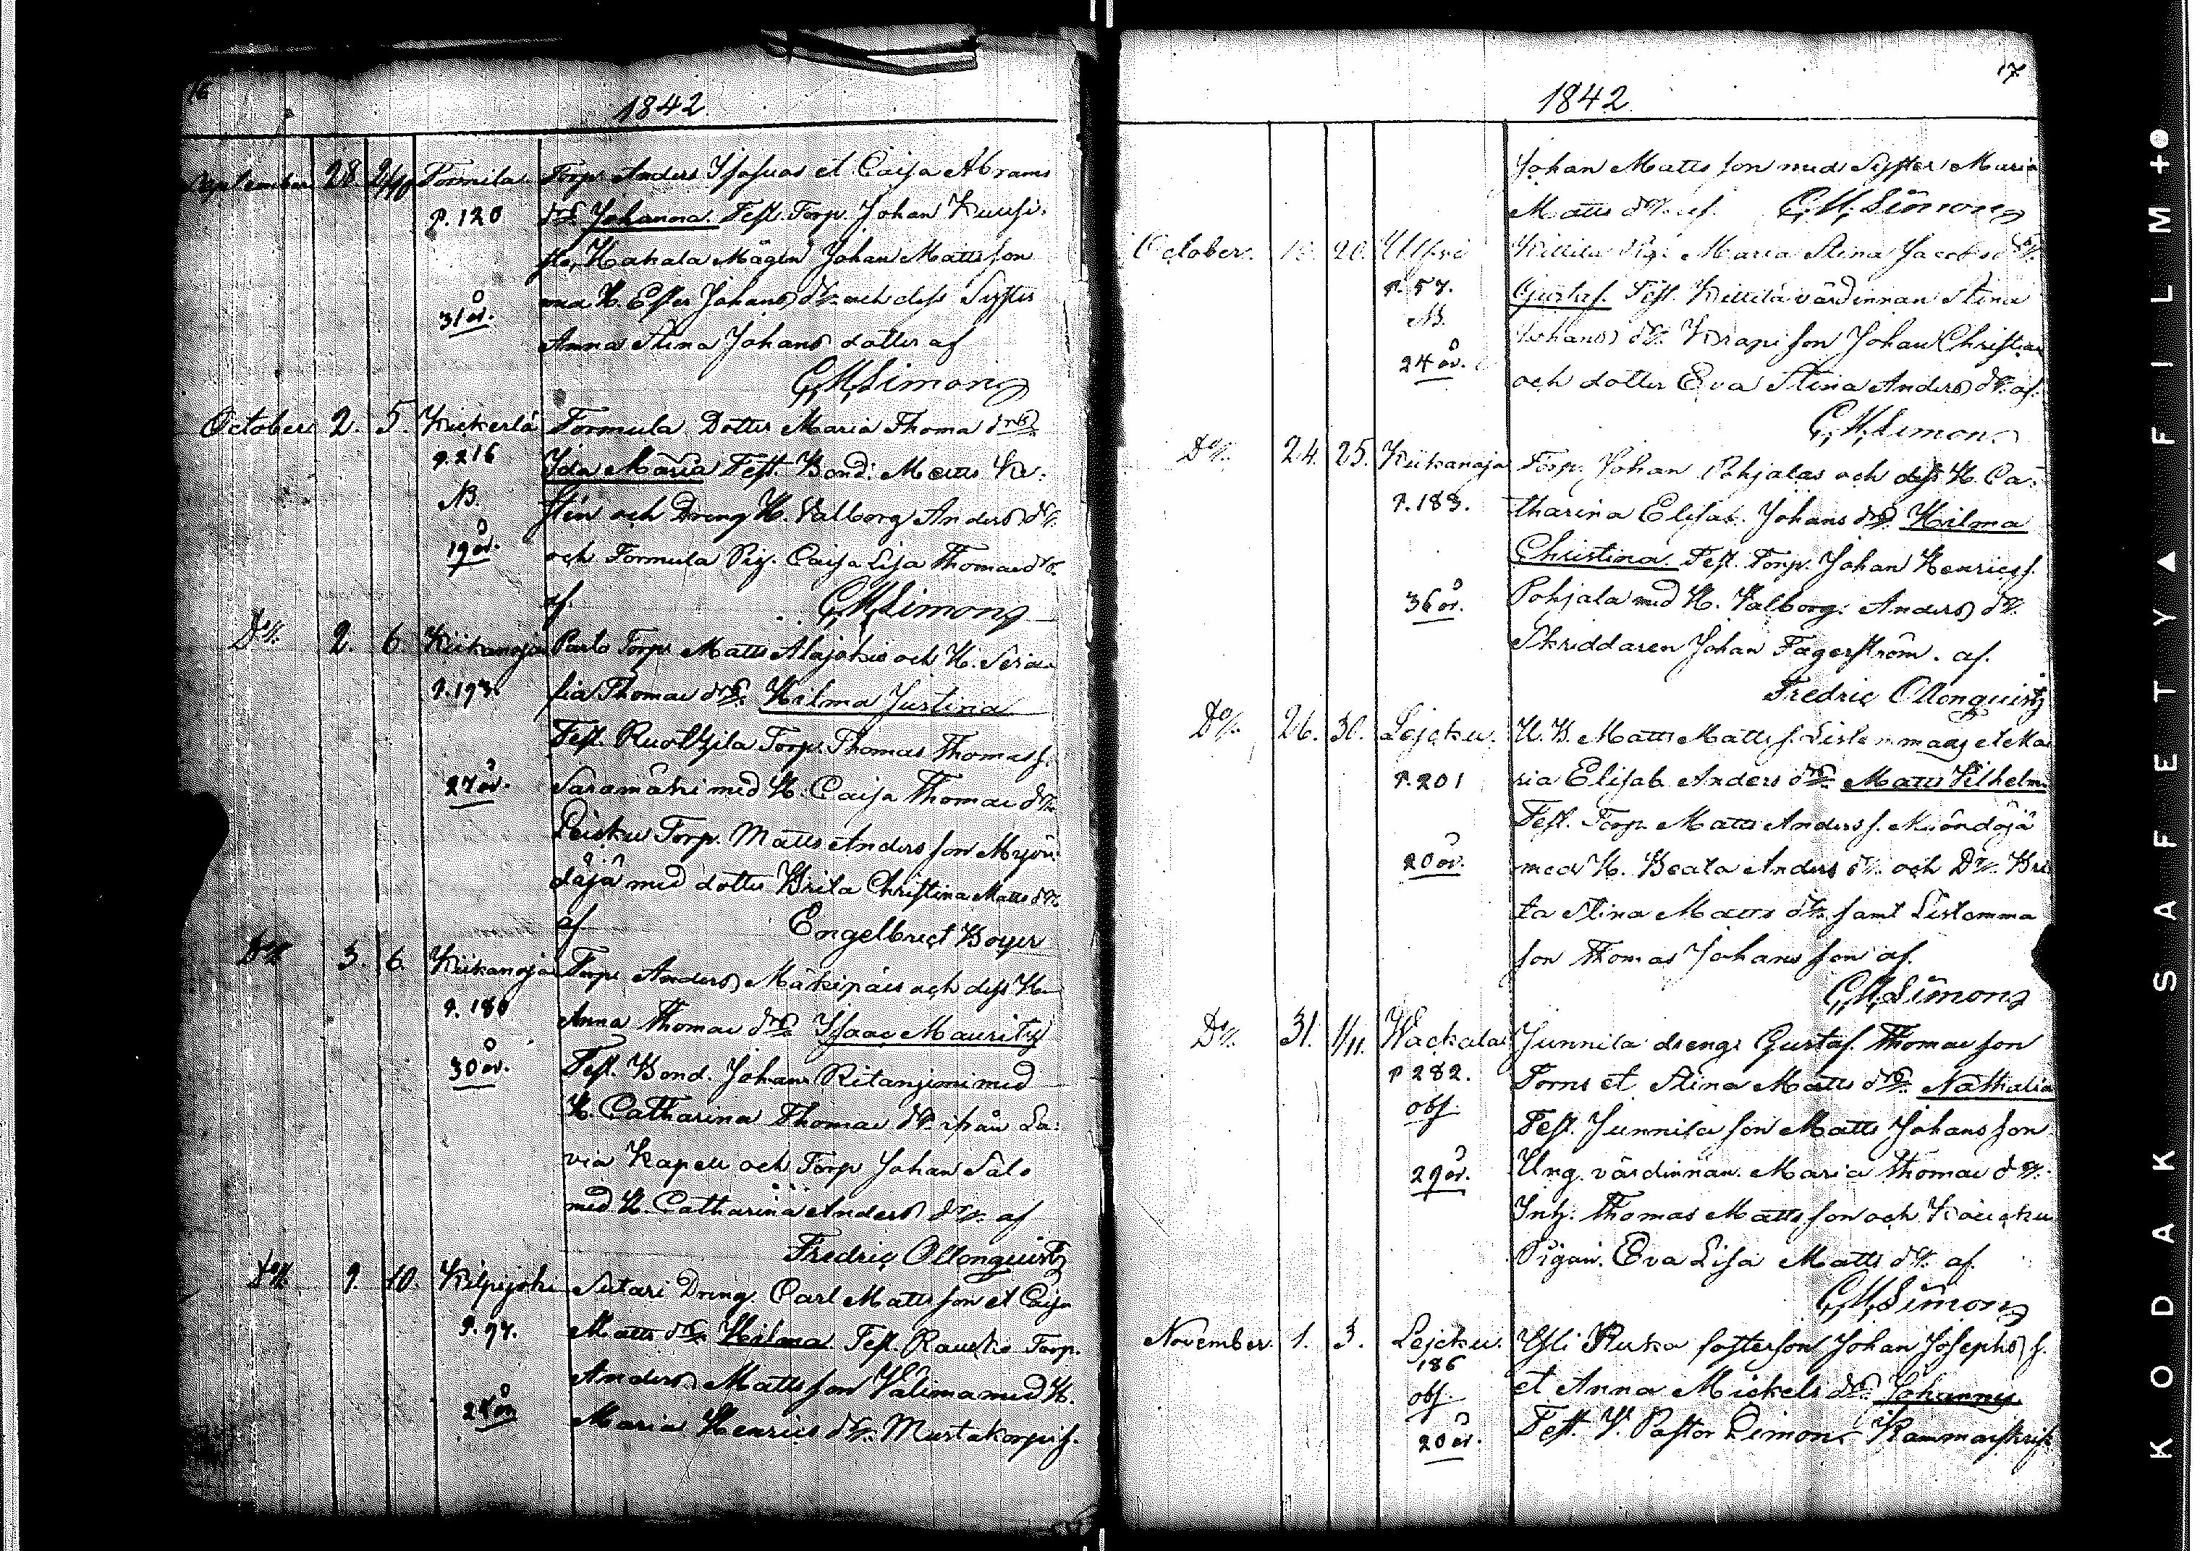 16
1842
September 28. 2/10 Tormila Torp. Anders Isaksas et Caisa Abrams
p. 120 dr. Johanna. Test. Torp. Johan Kuusi-
sto, Hakala Mågen Johan Mattsson
31 år. med H. Ester Johans dr. och dess Syster
Anna Stina Johans dotter af
C.M. Simon
October 2. 5. Kiikerlä Tormula Dotter Maria Thomæ dr.
p. 216 Ida Maria Test. Bond. Matts
N. och Dreng H. Valborg Anders dr.
19 år. och Tormula Pig. Caisa Lisa Thomæ dr.
af. C.M. Simon
Do 2. 6. Kiikanoja Torp. Matts Alajokis och H. Sera-
p. 193. fia Thomæ dr. Hilma Justina
Test. Torp. Thomas Thomas s.
27 år. Saramäki med H. Caisa Thomæ dr.
Leisku Torp. Matts Andersson
med dotter Brita Christina Matts dr.
af Engelbrect Boyer
Do 3. 6. Kiikanoja Torp. Anders Mäkipäis och dess H.
p. 180 Anna Thomæ dr. Isaac Mauritz
30 år. Test. Bond. Johan Ritanjemi med
H. Catharina Thomæ dr. ifrån La-
via Kapell och Torp. Johan Salo
med H. Catharina Anders dr. af
Fredric Ollonquist
Do 9. 10. Kilpijoki Sutari Dreng Carl Mattsson et Caisa
p. 97. Matts dr. Hilma. Test. Torp.
Anders Mattsson Välima med H.
24 år Maria Henrics dr. Mustakorpi s.
17
1842
Johan Mattsson med Syster Maria
Matts dr. af. C.M. Simon
October. 20. Kittilä Pig. Maria Stina Jacobs dr.
p. 57. Gustaf. Test. Kittilä värdinnan Stina
N. Johans dr. Krapi son Johan Christian
24 år. och dotter Eva Stina Anders dr. af.
C.M. Simon
Do 24. 25. Kiikanoja Torp. Johan Pohjalas och dess H. Ca-
p. 183. tharina Elisab. Johans dr. Hilma
Christina. Test. Torp. Johan Henrics s.
36 år. Pohjala med H. Valborg Anders dr.
Skräddaren Johan Fagerström. af.
Fredric Ollonquist
Do 26. 30. Lejcku. Matts Matts s. et Ma-
p. 201 ria Elisab. Anders dr. Matts Vilhelm
Test. Torp. Matts Anders s.
20 år. med H. Beata Anders dr. och Dr. Bri-
ta Stina Matts dr. samt Listamma
son Thomas Johansson af.
C.M. Simon
Do 31. 1/11. Wackala Junnila dreng Gustaf. Thomæ son
p 282. Torns et Stina Matts dr. Nathalia
obs. Test. Junnila son Matts Johansson
29 år. Ung. värdinnan Maria Thomæ dr.
Inh. Thomas Mattsson och
Pigan. Eva Lisa Matts dr. af
C.M. Simon
November. 1. 3. Lejcku. Ruka fosterson Johan Josephs s.
186 et Anna Mickels dr. Johannes
obs. Test. V. Pastor Simon.
20 år.
KODAK SAFETY ▲ FILM +●